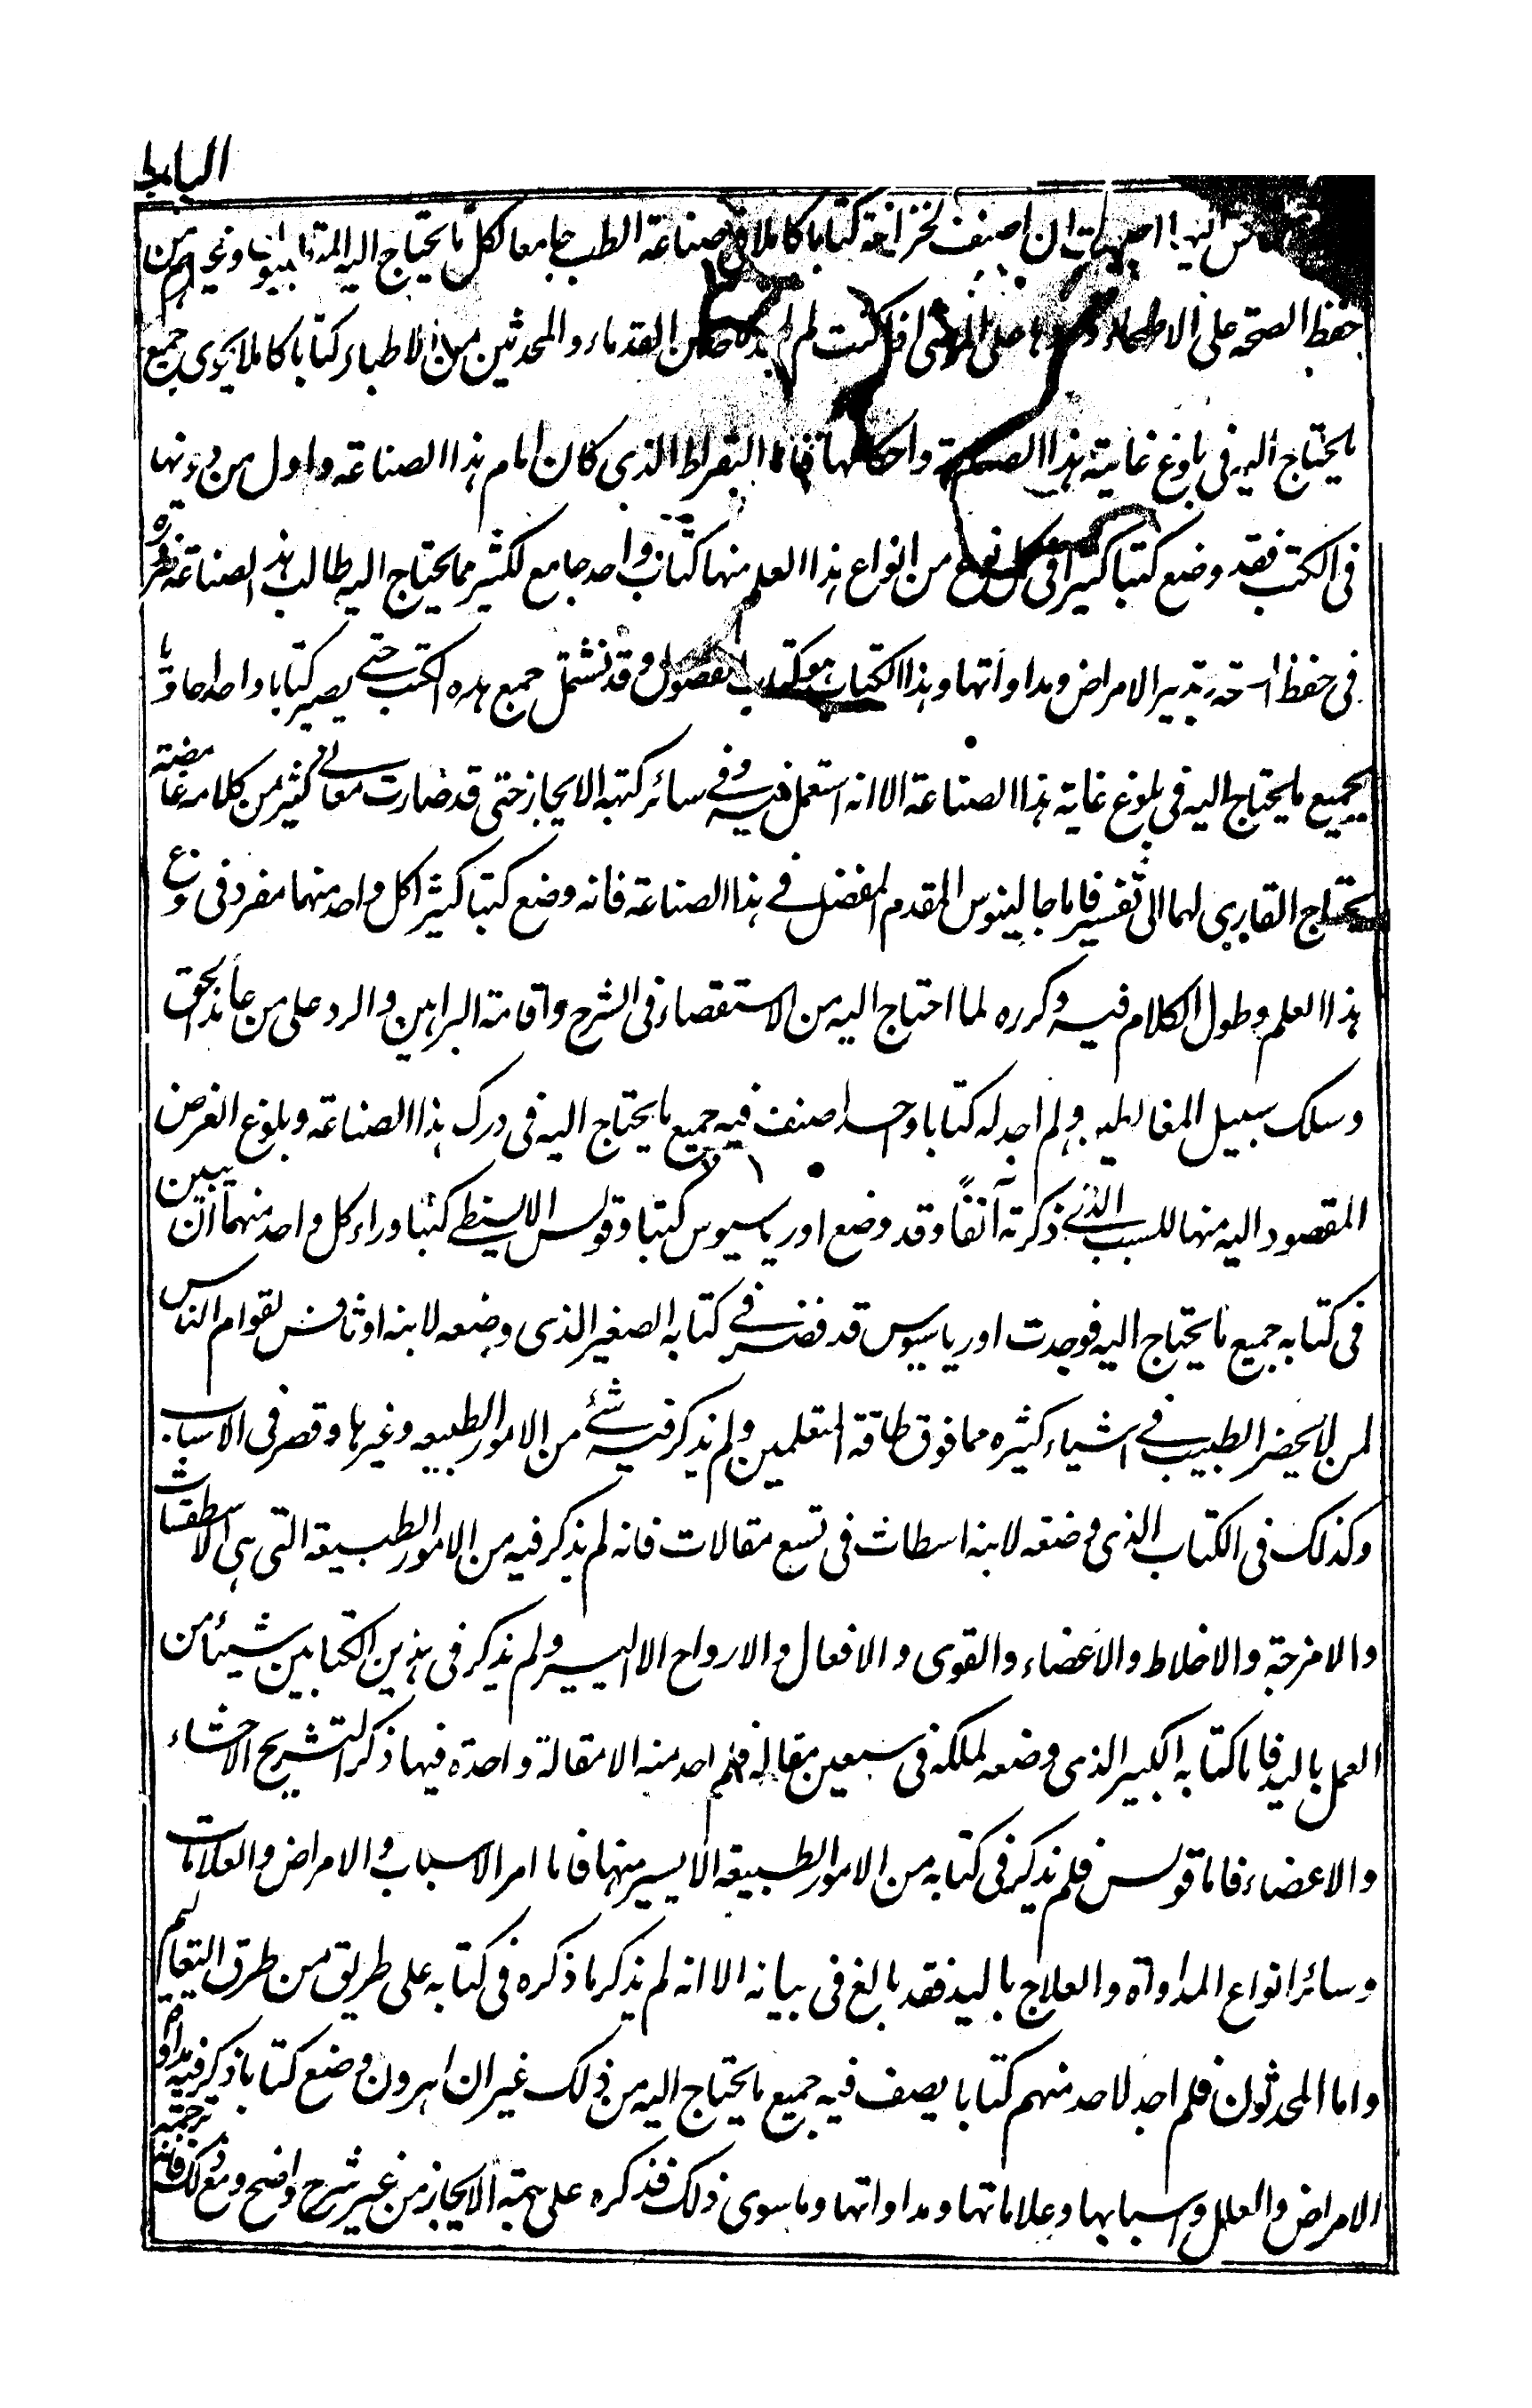 الباب
ان اصنف لخزانته كتابا كاملا فى صناعة الطب جامعا لكل ما يحتاج اليه المتطببون وغيرهم من
حفظ الصحة على الاصحاء على المرضى اذ كنت لم اجد القدماء والمحدثين من الاطباء كتابا كاملا يحوى جميع
ما يحتاج اليه فى بلوغ غاية هذا الصناعة واحكامها فاما البقراط الذى كان امام هذا الصناعة واول من دونها
فى الكتب فقد وضع كتبا كثيرا فى كل نوع من انواع هذا العلم منها كتاب واحد جامع لكثير مما يحتاج اليه طالب هذه الصناعة ضرورة
فى حفظ الصحة وتدبير الامراض ومداواتها وهذا الكتاب هو كتاب الفصول وقد نشتمل جميع هذه الكتب حتى يصير كتابا واحدا حاويا
لجميع ما يحتاج اليه فى بلوغ غاية هذا الصناعة الا انه استعمل فيه وفى سائر كتبه الايجاز حتى قد صارت معانى كثير من كلامه غامضته
يحتاج القارى لهما الى تفسير فاما جالينوس المقدم المفضل فى هذا الصناعة فانه وضع كتبا كثيرا كل واحد منهما مفرد فى نوع
هذا العلم وطول الكلام فيه وكرره لما احتاج اليه من الاستقصاء فى الشرح واقامة البراهين والرد على من عاند الحق
وسلك سبيل المغاليطيه ولم اجد له كتابا واحدا صنف فيه جميع ما يحتاج اليه فى درك هذا الصناعة وبلوغ الغرض
المقصود اليه منها للسبب الذى ذكرته آنفاً وقد وضع اورياسيوس كتبا وقولس الاسيطى كتبا وراء كل واحد منهما ان يبين
فى كتابه جميع ما يحتاج اليه فوجدت اورياسيوس قد فضر فى كتابه الصغير الذى وضعه لابنه اونافس لقوام الناس
لمن لا يحضر الطبيب فى اشياء كثيره مما فوق طاقة المتعلمين ولم يذكر فيه شئ من الامور الطبيعه وغيرها وقصر فى الاسباب
وكذلك فى الكتاب الذى وضعه لابنه اسطاث فى تسع مقالات فانه لم يذكر فيه من الامور الطبيعة التى هى الاسطقسات
والامزجة والاخلاط والاعضاء والقوى والافعال والارواح الا اليسير ولم يذكر فى هذين الكتابين شيئا من
العمل باليد فاما كتابه الكبير الذى وضعه لملكه فى سبعين مقاله فلم اجد منه الا مقالة واحدة فيها ذكر التشريح الاحشاء
والاعضاء فاما قولس فلم يذكر فى كتابه من الامور الطبيعه الا يسير منها فاما امر الاسباب والامراض والعلامات
وسائر انواع المداواة والعلاج باليد فقد بالغ فى بيانه الا انه لم يذكر ما ذكره فى كتابه على طريق من طرق التعاليم
واما المحدثون فلم اجد لاحد منهم كتابا يصف فيه جميع ما يحتاج اليه من ذلك غير ان اهرون وضع كتابا ذكر فيه مداواة
الامراض والعلل واسبابها وعلاماتها ومداواتها وما سوى ذلك فذكره على جهة الايجاز من غير شرح واضح ومع ذلك فان ترجمته